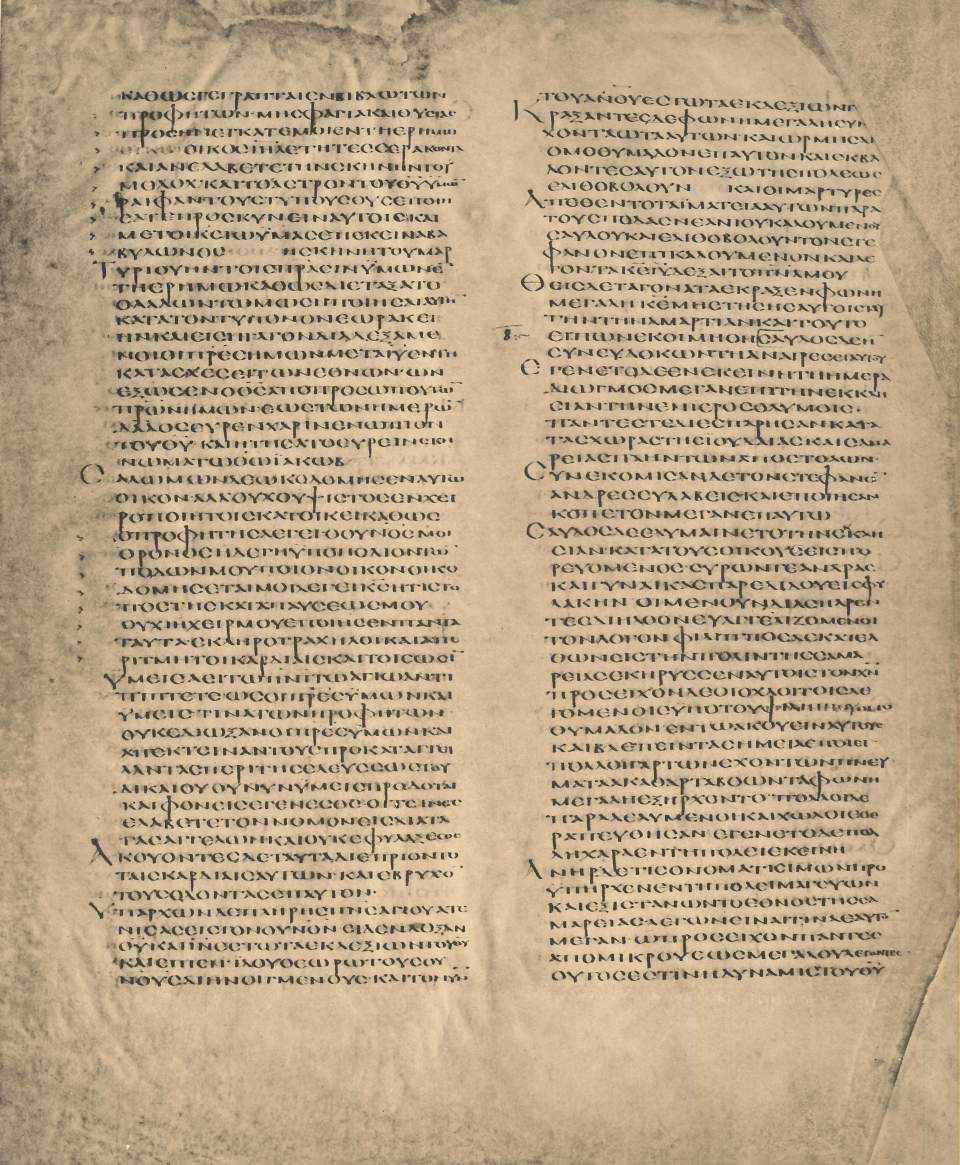 ΚΑΘΩϹΓΕΓΡΑΠΤΑΙΕΝΒΙΒΛΩΤΩΝ
ΠΡΟΦΗΤΩΝ·ΜΗϹΦΑΓΙΑΚΑΙΘΥϹΙΑϹ
ΠΡΟϹΗΝΕΓΚΑΤΕΜΟΙΕΝΤΗΕΡΗΜΩ
ΟΙΚΟϹΙΗΛΕΤΗΤΕϹϹΕΡΑΚΟΝΤΑ
ΚΑΙΑΝΕΛΑΒΕΤΕΤΗΝϹΚΗΝΗΝΤΟΥ
ΜΟΛΟΧΚΑΙΤΟΑϹΤΡΟΝΤΟΥΘΥΥΜΩ
ΡΑΙΦΑΝΤΟΥϹΤΥΠΟΥϹΟΥϹΕΠΟΙΗ
ϹΑΤΕΠΡΟϹΚΥΝΕΙΝΑΥΤΟΙϹΚΑΙ
ΜΕΤΟΙΚΕΙΩΫΜΑϹΕΠΕΚΕΙΝΑΒΑ
ΒΥΛΩΝΟϹ ΗϹΚΗΝΗΤΟΥΜΑΡ
ΤΥΡΙΟΥΗΝΤΟΙϹΠΡΑϹΙΝΫΜΩΝΕ
ΤΗΕΡΗΜΩΚΑΘΩϹΔΙΕΤΑΞΑΤΟ
ΟΛΑΛΩΝΤΩΜΩϹΗΠΟΙΗϹΑΙΑΥΤΗ
ΚΑΤΑΤΟΝΤΥΠΟΝΟΝΕΩΡΑΚΕΙ
ΗΝΚΑΙΕΙϹΗΓΑΓΟΝΔΙΑΔΕΞΑΜΕ
ΝΟΙΟΙΠΡΕϹΗΜΩΝΜΕΤΑΙΫΕΝΤΗ
ΚΑΤΑϹΧΕϹΕΙΤΩΝΕΘΝΩΝ·ΩΝ
ΕΞΩϹΕΝΟΘϹΑΠΟΠΡΟϹΩΠΟΥΤΩ
ΠΡΩΝΗΜΩΝ·ΕΩϹΤΩΝΗΜΕΡΩ
ΔΑΔΟϹΕΥΡΕΝΧΑΡΙΝΕΝΩΠΙΟΝ
ΤΟΥΘΥ·ΚΑΙΗΤΗϹΑΤΟΕΥΡΕΙΝϹΚΗ
ΝΩΜΑΤΩΘΩΪΑΚΩΒ·
ϹΑΛΩΜΩΝΔΕΩΚΟΔΟΜΗϹΕΝΑΥΤΩ
ΟΙΚΟΝ·ΑΛΛΟΥΧΟΥΨΙϹΤΟϹΕΝΧΕΙ
ΡΟΠΟΙΗΤΟΙϹΚΑΤΟΙΚΕΙΚΑΘΩϹ
ΟΠΡΟΦΗΤΗϹΛΕΓΕΙΟΟΥΝΟϹΜΟΙ
ΘΡΟΝΟϹΗΔΕΓΗΫΠΟΠΟΔΙΟΝΤΩ
ΠΟΔΩΝΜΟΥΠΟΙΟΝΟΙΚΟΝΟΙΚΟ
ΔΟΜΗϹΕΤΑΙΜΟΙΛΕΓΕΙΚϹΗΤΙϹΤΟ
ΠΟϹΤΗϹΚΑΤΑΠΑΥϹΕΩϹΜΟΥ
ΟΥΧΙΗΧΕΙΡΜΟΥΕΠΟΙΗϹΕΝΠΑΝΤΑ
ΤΑΥΤΑ·ϹΚΛΗΡΟΤΡΑΧΗΛΟΙΚΑΙΑΠΕ
ΡΙΤΜΗΤΟΙΚΑΡΔΙΑΙϹΚΑΙΤΟΙϹΩϹΙ
ΥΜΕΙϹΑΕΙΤΩΠΝΙΤΩΑΓΙΩΑΝΤΙ
ΠΙΠΤΕΤΕΩϹΟΙΠΡΕϹΫΜΩΝΚΑΙ
ΫΜΕΙϹΤΙΝΑΤΩΝΠΡΟΦΗΤΩΝ
ΟΥΚΕΔΙΩΞΑΝΟΙΠΡΕϹΥΜΩΝΚΑΙ
ΑΠΕΚΤΕΙΝΑΝΤΟΥϹΠΡΟΚΑΤΑΓΓΙ
ΛΑΝΤΑϹΠΕΡΙΤΗϹΕΛΕΥϹΕΩϹΤΟΥ
ΔΙΚΑΙΟΥΟΥΝΥΝΫΜΕΙϹΠΡΟΔΟΤΑΙ
ΚΑΙΦΟΝΕΙϹΕΓΕΝΕϹΘΕ·ΟΙΤΕΙΝΕϹ
ΕΛΑΒΕΤΕΤΟΝΝΟΜΟΝΕΙϹΔΙΑΤΑ
ΓΑϹΑΓΓΕΛΩΝΚΑΙΟΥΚΕΦΥΛΑΞΕϹΘΕ
ΑΚΟΥΟΝΤΕϹΔΕΤΑΥΤΑΔΙΕΠΡΙΟΝΤΟ
ΤΑΙϹΚΑΡΔΙΑΙϹΑΥΤΩΝ·ΚΑΙΕΒΡΥΧΟ
ΤΟΥϹΟΔΟΝΤΑϹΕΠΑΥΤΟΝ·
ΥΠΑΡΧΩΝΔΕΠΛΗΡΗϹΠΝϹΑΓΙΟΥΑΤΕ
ΝΙϹΑϹΕΙϹΤΟΝΟΥΝΟΝΕΙΔΕΝΔΟΞΑΝ
ΘΥΚΑΙΙΝΕϹΤΩΤΑΕΚΔΕΞΙΩΝΤΟΥΘΥ
ΚΑΙΕΙΠΕΝ·ΪΔΟΥΘΕΩΡΩΤΟΥϹΟΥ
ΝΟΥϹΔΙΗΝΟΙΓΜΕΝΟΥϹ·ΚΑΙΤΟΝΥΝ
ΤΟΥΑΝΟΥΕϹΤΩΤΑΕΚΔΕΞΙΩΝΤ
ΚΡΑΞΑΝΤΕϹΔΕΦΩΝΗΜΕΓΑΛΗϹΥΝ
ΧΟΝΤΑΩΤΑΑΥΤΩΝ·ΚΑΙΩΡΜΗϹΑ
ΟΜΟΘΥΜΑΔΟΝΕΠΑΥΤΟΝΚΑΙΕΚΒΑ
ΛΟΝΤΕϹΑΥΤΟΝΕΞΩΤΗϹΠΟΛΕΩϹ
ΕΛΙΘΟΒΟΛΟΥΝ ΚΑΙΟΙΜΑΡΤΥΡΕϹ
ΑΠΕΘΕΝΤΟΤΑΪΜΑΤΕΙΑΑΥΤΩΝΠΑΡΑ
ΤΟΥϹΠΟΔΑϹΝΕΑΝΙΟΥΚΑΛΟΥΜΕΝΟΥ
ϹΑΥΛΟΥΚΑΙΕΛΙΘΟΒΟΛΟΥΝΤΟΝϹΤΕ
ΦΑΝΟΝΕΠΙΚΑΛΟΥΜΕΝΟΝΚΑΙΛΕ
ΓΟΝΤΑΚΕΙΥΔΕΞΑΙΤΟΠΝΑΜΟΥ
ΘΕΙϹΔΕΤΑΓΟΝΑΤΑΕΚΡΑΞΕΝΦΩΝΗ
ΜΕΓΑΛΗ·ΚΕΜΗϹΤΗϹΗϹΑΥΤΟΙϹ
ΤΗΝΤΗΝΑΜΑΡΤΙΑΝΚΑΙΤΟΥΤΟ
ΕΙΠΩΝΕΚΟΙΜΗΘΗϹΑΥΛΟϹΔΕΗ
ϹΥΝΕΥΔΟΚΩΝΤΗΑΝΑΙΡΕϹΕΙΑΥΤΟΥ
ΕΓΕΝΕΤΟΔΕΕΝΕΚΕΙΝΗΤΗΗΜΕΡΑ
ΔΙΩΓΜΟϹΜΕΓΑϹΕΠΙΤΗΝΕΚΚΛΗ
ϹΙΑΝΤΗΝΕΝΙΕΡΟϹΟΛΥΜΟΙϹ·
ΠΑΝΤΕϹΤΕΔΙΕϹΠΑΡΗϹΑΝΚΑΤΑ
ΤΑϹΧΩΡΑϹΤΗϹΙΟΥΔΑΙΑϹΚΑΙϹΑΜΑ
ΡΕΙΑϹΠΛΗΝΤΩΝΑΠΟϹΤΟΛΩΝ·
ϹΥΝΕΚΟΜΙϹΑΝΔΕΤΟΝϹΤΕΦΑΝΟ
ΑΝΔΡΕϹΕΥΛΑΒΕΙϹΚΑΙΕΠΟΙΗϹΑΝ
ΚΟΠΕΤΟΝΜΕΓΑΝΕΠΑΥΤΩ
ϹΑΥΛΟϹΔΕΕΛΥΜΑΙΝΕΤΟΤΗΝΕΚΚΛΗ
ϹΙΑΝ·ΚΑΤΑΤΟΥϹΟΙΚΟΥϹΕΙϹΠΟ
ΡΕΥΟΜΕΝΟϹϹΥΡΩΝΤΕΑΝΔΡΑϹ
ΚΑΙΓΥΝΑΙΚΑϹΠΑΡΕΔΙΔΟΥΕΙϹΦΥ
ΛΑΚΗΝ·ΟΙΜΕΝΟΥΝΔΙΑϹΠΑΡΕΝ
ΤΕϹΔΙΗΛΘΟΝΕΥΑΓΓΕΛΙΖΟΜΕΝΟΙ
ΤΟΝΛΟΓΟΝ·ΦΙΛΙΠΠΟϹΔΕΚΑΤΕΛ
ΘΩΝΕΙϹΤΗΝΠΟΛΙΝΤΗϹϹΑΜΑ
ΡΕΙΑϹΕΚΗΡΥϹϹΕΝΑΥΤΟΙϹΤΟΝΧΝ
ΠΡΟϹΕΙΧΟΝΔΕΟΙΟΧΛΟΙΤΟΙϹΛΕ
ΓΟΜΕΝΟΙϹΥΠΟΤΟΥΦΙΛΙΠΠΟΥΟΜΟ
ΘΥΜΑΔΟΝ·ΕΝΤΩΑΚΟΥΕΙΝΑΥΤΟΥϹ
ΚΑΙΒΛΕΠΕΙΝΤΑϹΗΜΕΙΑΕΠΟΙΕΙ
ΠΟΛΛΟΙΓΑΡΤΩΝΕΧΟΝΤΩΝΠΝΕΥ
ΜΑΤΑΑΚΑΘΑΡΤΑΒΟΩΝΤΑΦΩΝΗ
ΜΕΓΑΛΗΕΞΗΡΧΟΝΤΟ·ΠΟΛΛΟΙΔΕ
ΠΑΡΑΛΕΛΥΜΕΝΟΙΚΑΙΧΩΛΟΙΕΘΕ
ΡΑΠΕΥΘΗϹΑΝ·ΕΓΕΝΕΤΟΔΕΠΟΛ
ΛΗΧΑΡΑΕΝΤΗΠΟΛΕΙΕΚΕΙΝΗ
ΑΝΗΡΔΕΤΙϹΟΝΟΜΑΤΙϹΙΜΩΝΠΡΟ
ΥΠΗΡΧΕΝΕΝΤΗΠΟΛΕΙΜΑΓΕΥΩΝ
ΚΑΙΕΞΙϹΤΑΝΩΝΤΟΕΘΝΟϹΤΗϹϹΑ
ΜΑΡΕΙΑϹΛΕΓΩΝΕΙΝΑΙΤΙΝΑΕΑΥΤΟ
ΜΕΓΑΝ·ΩΠΡΟϹΕΙΧΟΝΠΑΝΤΕϹ
ΑΠΟΜΙΚΡΟΥΕΩϹΜΕΓΑΛΟΥΛΕΓΟΝΤΕϹ
ΟΥΤΟϹΕϹΤΙΝΗΔΥΝΑΜΙϹΤΟΥΘΥ